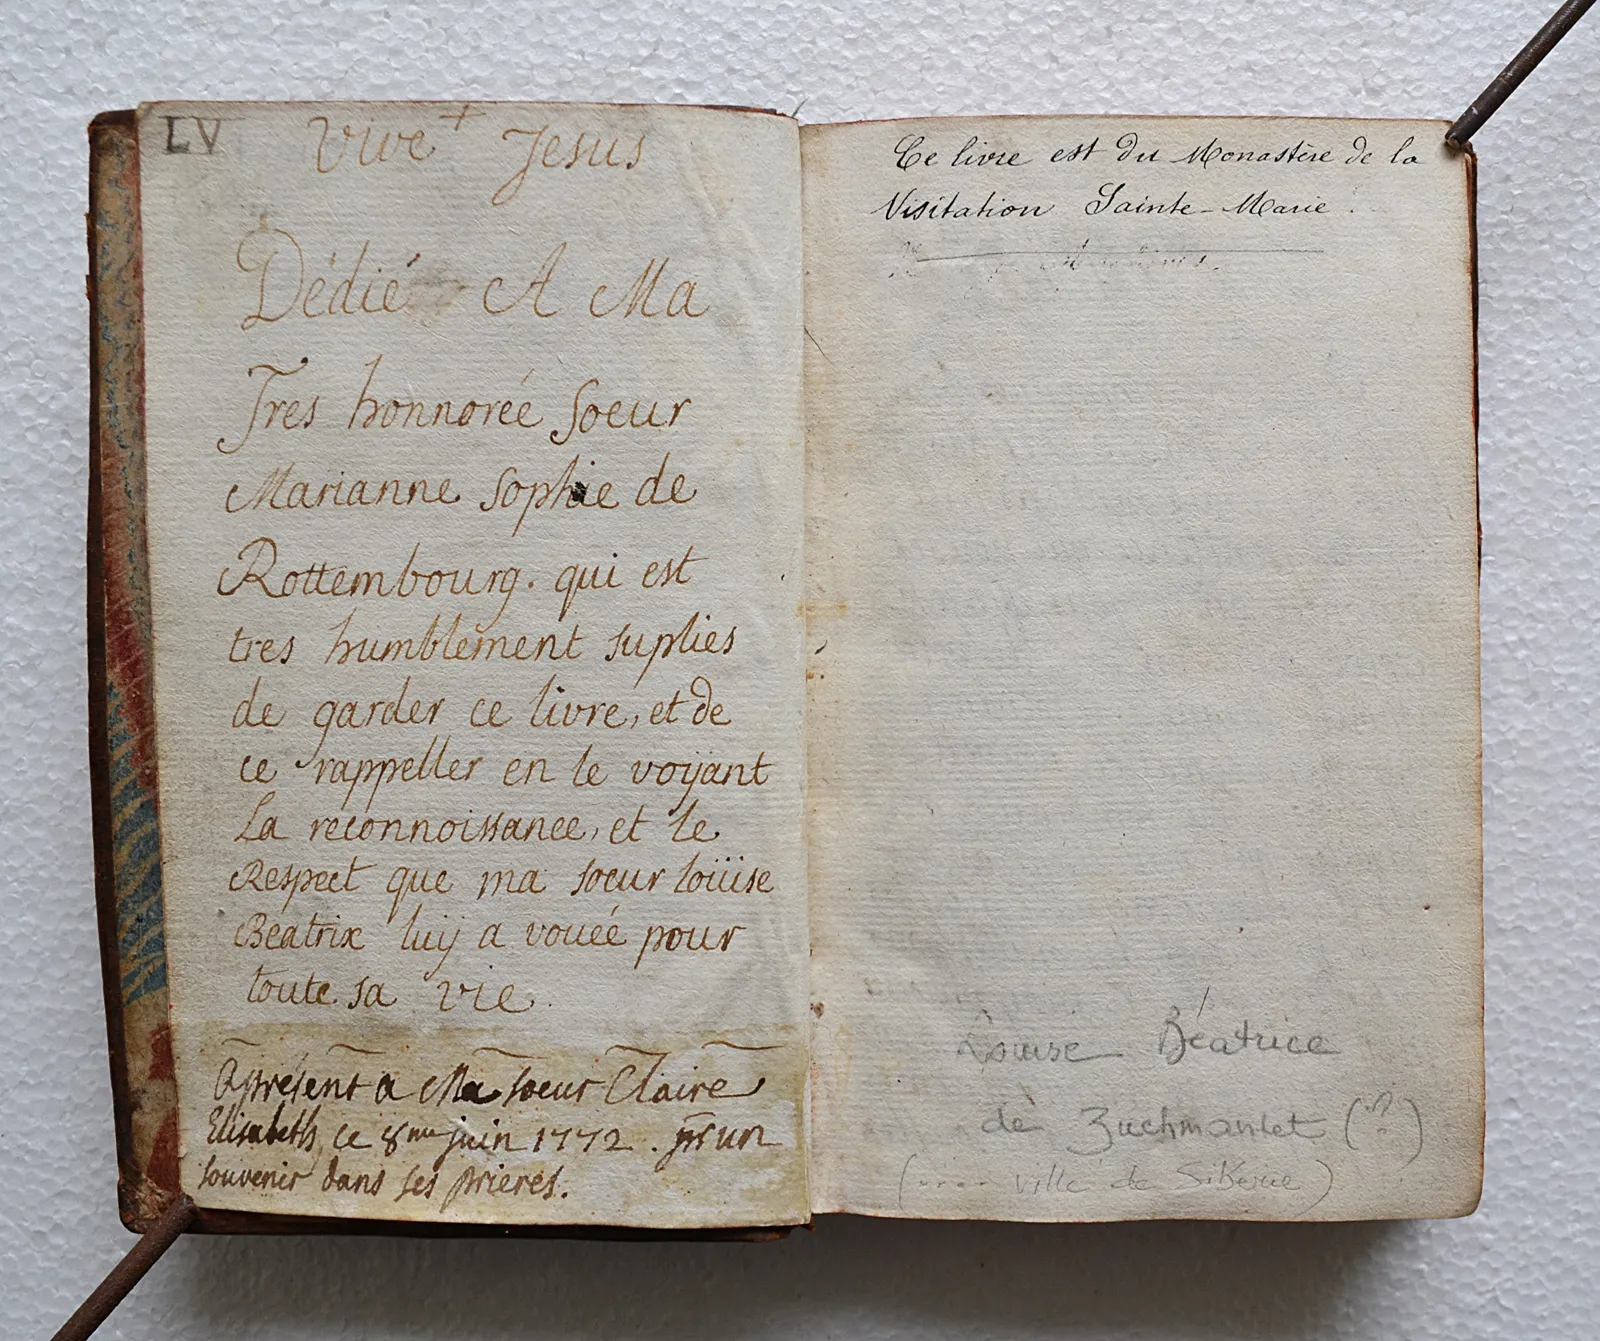 LV
Vive + Jesus
Dédié A Ma
Tres honnorée soeur
Marianne sophie de
Rottembourg. qui est
tres humblement suplies
de garder ce livre, et de
ce rappeller en le voÿant
La reconnoissance, et le
Respect que ma soeur loüise
Beatrix luÿ a vouéé pour
toute sa vie.
Apresent a Ma soeur Claire
Elisabeth, ce 8me juin 1772. pr un
souvenir dans ses prieres.
Ce livre est du Monastère de la
Visitation Sainte-Marie.
Louise Béatrice
de Zuchmantet (?)
(.... ville de)